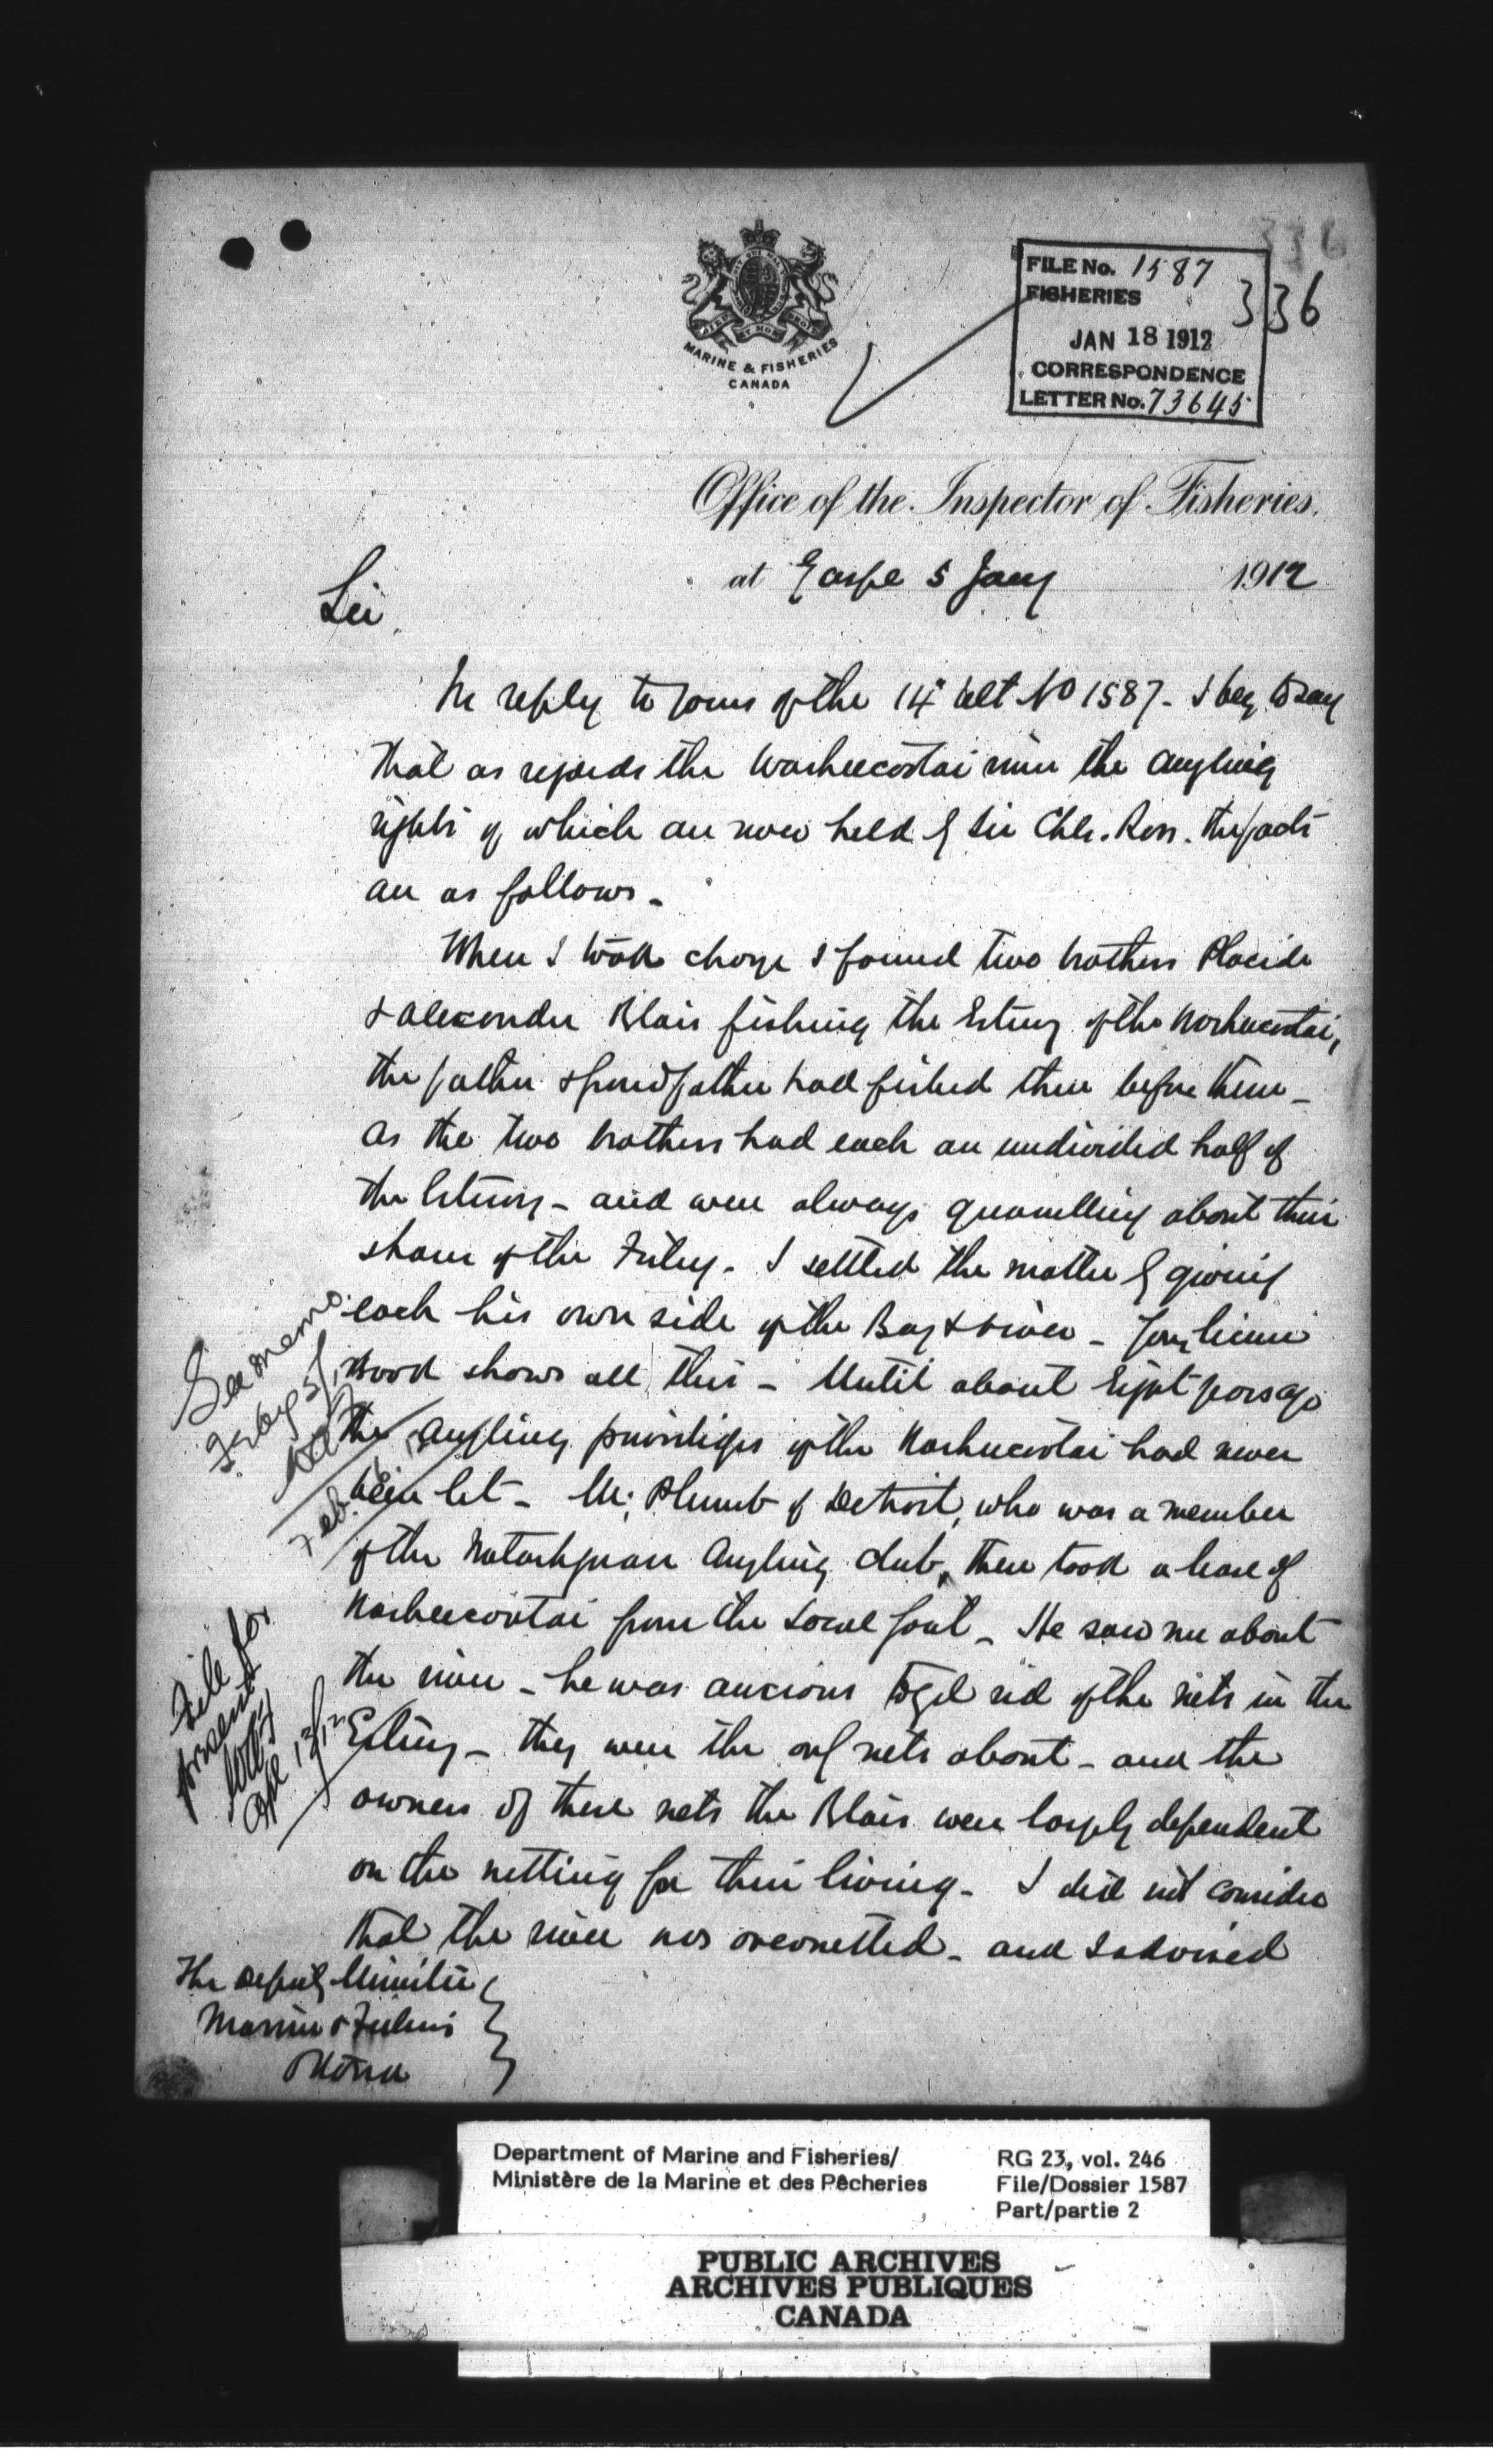 336
FILE No. 1587
FISHERIES
336
JAN 18 1912
CORRESPONDENCE
LETTER No. 73645
MARINE & FISHERIES
CANADA
Office of the Inspector of Fisheries.
at Gaspe 5 Jany 1912
Sir,
In reply to yours of the 14th ult No 1587 - I beg to say
that as regards the Washeecootai river the angling
rights of which are now held by Sir Chls. Ross. the facts
are as follows -
When I took charge I found two brothers Placide
& Alexander Blais fishing the Estuary of the Washeecootai,
the father & grandfather had fished there before them -
As the two brothers had each an undivided half of
the Estuary - and were always quarrelling about their
share of the Fishery - I settled the matter by giving
each his own side of the Bay & river - Your license
Book shows all this - Until about Eight years ago
the angling privileges of the Washeecootai had never
been let - Mr. Plumb of Detroit, who was a member
of the Natashquan Angling club, then took a lease of
Washeecootai from the Local Govt - He saw me about
the river - he was anxious to get rid of the nets in the
Estuary - they were the only nets about - and the
owners of these nets the Blais were largely dependent
on the netting for their living - I did not consider
that the river was overnetted - and I advised
See memo
Feb.
File for
present
The Deputy Minister
Marine & Fisheries
Ottawa
Department of Marine and Fisheries/
Ministère de la Marine et des Pêcheries
RG 23, vol. 246
File/Dossier 1587
Part/partie 2
PUBLIC ARCHIVES
ARCHIVES PUBLIQUES
CANADA